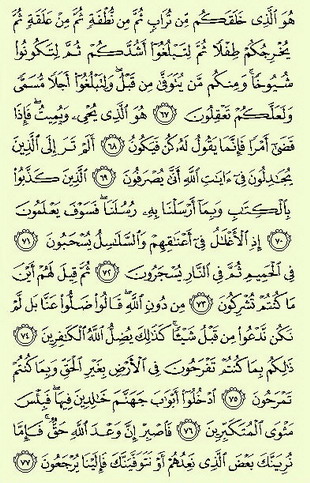 هُوَ ٱلَّذِى خَلَقَكُم مِّن تُرَابٍ ثُمَّ مِن نُّطْفَةٍ ثُمَّ مِنْ عَلَقَةٍ ثُمَّ
يُخْرِجُكُمْ طِفْلًا ثُمَّ لِتَبْلُغُوٓا۟ أَشُدَّكُمْ ثُمَّ لِتَكُونُوا۟
شُيُوخًا ۚ وَمِنكُم مَّن يُتَوَفَّىٰ مِن قَبْلُ ۖ وَلِتَبْلُغُوٓا۟ أَجَلًا مُّسَمًّى
وَلَعَلَّكُمْ تَعْقِلُونَ ٦٧ هُوَ ٱلَّذِى يُحْىِۦ وَيُمِيتُ ۖ فَإِذَا
قَضَىٰٓ أَمْرًا فَإِنَّمَا يَقُولُ لَهُۥ كُن فَيَكُونُ ٦٨ أَلَمْ تَرَ إِلَى ٱلَّذِينَ
يُجَٰدِلُونَ فِىٓ ءَايَٰتِ ٱللَّهِ أَنَّىٰ يُصْرَفُونَ ٦٩ ٱلَّذِينَ كَذَّبُوا۟
بِٱلْكِتَٰبِ وَبِمَآ أَرْسَلْنَا بِهِۦ رُسُلَنَا ۖ فَسَوْفَ يَعْلَمُونَ
٧٠ إِذِ ٱلْأَغْلَٰلُ فِىٓ أَعْنَٰقِهِمْ وَٱلسَّلَٰسِلُ يُسْحَبُونَ ٧١
فِى ٱلْحَمِيمِ ثُمَّ فِى ٱلنَّارِ يُسْجَرُونَ ٧٢ ثُمَّ قِيلَ لَهُمْ أَيْنَ
مَا كُنتُمْ تُشْرِكُونَ ٧٣ مِن دُونِ ٱللَّهِ ۖ قَالُوا۟ ضَلُّوا۟ عَنَّا بَل لَّمْ
نَكُن نَّدْعُوا۟ مِن قَبْلُ شَيْـًٔا ۚ كَذَٰلِكَ يُضِلُّ ٱللَّهُ ٱلْكَٰفِرِينَ ٧٤
ذَٰلِكُم بِمَا كُنتُمْ تَفْرَحُونَ فِى ٱلْأَرْضِ بِغَيْرِ ٱلْحَقِّ وَبِمَا كُنتُمْ
تَمْرَحُونَ ٧٥ ٱدْخُلُوٓا۟ أَبْوَٰبَ جَهَنَّمَ خَٰلِدِينَ فِيهَا ۖ فَبِئْسَ
مَثْوَى ٱلْمُتَكَبِّرِينَ ٧٦ فَٱصْبِرْ إِنَّ وَعْدَ ٱللَّهِ حَقٌّ ۚ فَإِمَّا
نُرِيَنَّكَ بَعْضَ ٱلَّذِى نَعِدُهُمْ أَوْ نَتَوَفَّيَنَّكَ فَإِلَيْنَا يُرْجَعُونَ ٧٧